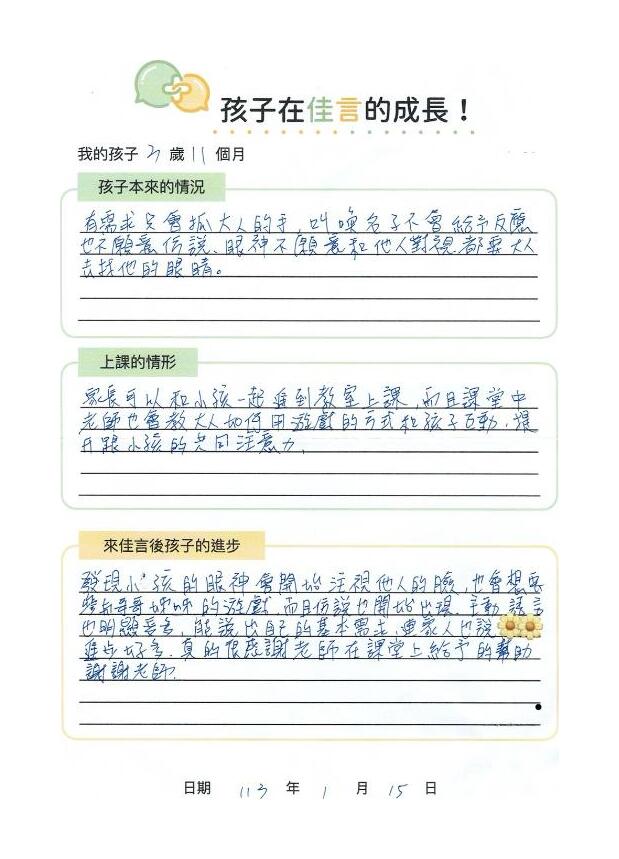 孩子在佳言的成長！
我的孩子 3 歲 11 個月
孩子本來的情況
有需求只會抓大人的手，叫喚名子不會給予反應
也不願意仿說、眼神不願意和他人對視都要大人
去找他的眼睛。
上課的情形
家長可以和小孩一起進到教室上課，而且課堂中
老師也會教大人如何用遊戲的方式和孩子互動，提
升跟小孩的共同注意力.
來佳言後孩子的進步
發現小孩的眼神會開始注視他人的臉，也會想要
參與哥哥姊姊的遊戲，而且仿說也開始出現，主動語言
也明顯變多，能說出自己的基本需求，連家人也說
進步好多，真的很感謝老師在課堂上給予的幫助
謝謝老師.
日期 113 年 1 月 15 日